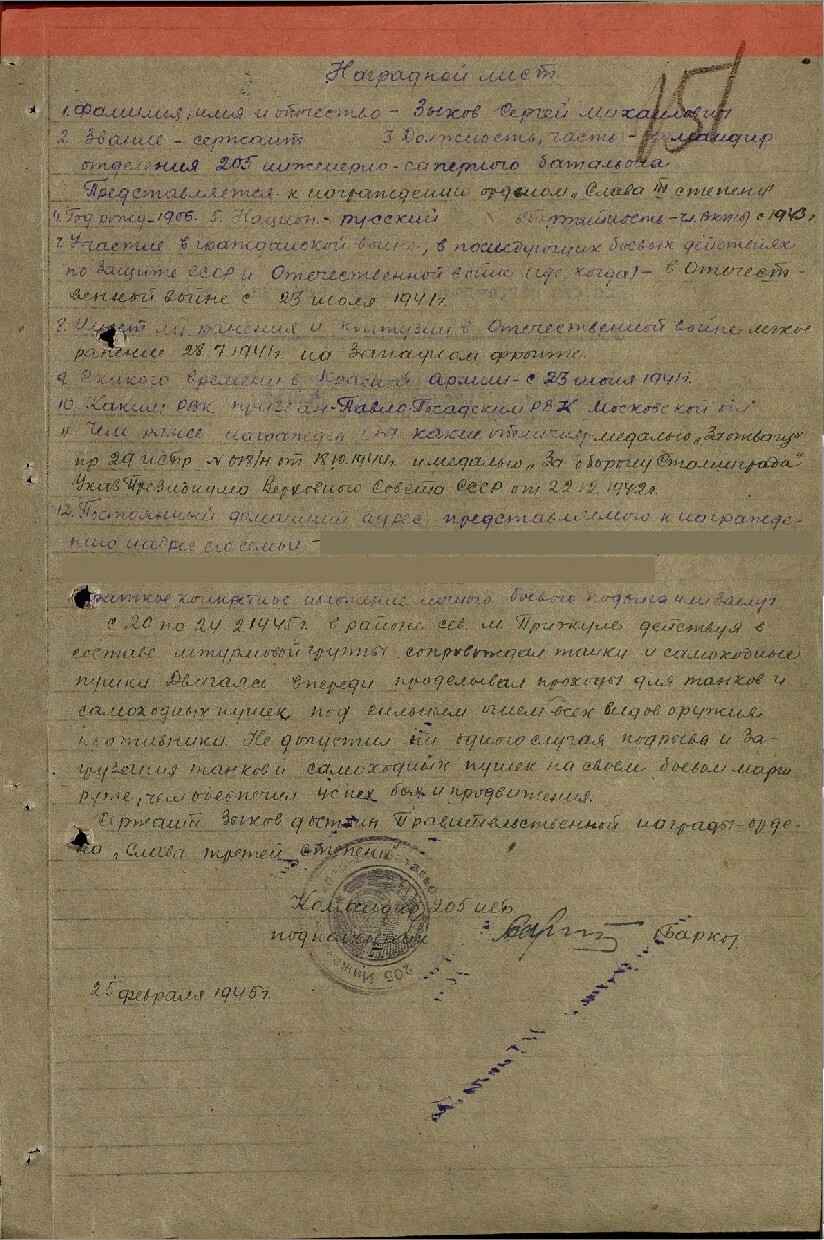 151
Наградной лист
1. Фамилия, имя и отчество – Зыков Сергей Михайлович
2. Звание – сержант 3. Должность, часть – командир
отделения 205 инженерно-саперного батальона
Представляется к награждению орденом „Слава III степени"
4. Год рожд – 1906. 5. Национ. – русский партийность – чл. ВКП(б) с 1943 г.
7. Участие в гражданской войне, в последующих боевых действиях
по защите СССР и Отечественной войне (где, когда) – в Отечест-
венной войне с 23 июля 1941 г.
8. Имеет ли ранения и контузии в Отечественной войне легкое
ранение 28.7.1941 г. на Западном фронте.
9. С какого времени в Красной армии – с 23 июня 1941 г.
10. Каким РВК призван – Павло-Посадским РВК Московской обл
11. Чем ранее награжден (за какие отличия) – медалью „За отвагу"
пр 29 от 18.10.1944 г. и медалью „За оборону Сталинграда"
Указ Президиума Верховного Совета СССР от 22.12.1942 г.
12. Постоянный домашний адрес представляемого к награжде-
нию и адрес его семьи –
Краткое конкретное изложение личного боевого подвига или заслуг
С 20 по 24.2.1945 г. в районе сев. м. Прижуле действуя в
составе штурмовой группы сопровождал танки и самоходные
пушки. Двигаясь впереди проделывал проходы для танков и
самоходных пушек, под сильным огнем всех видов оружия
противника. Не допустил ни одного случая подрыва и за-
грузания танков и самоходных пушек на своем боевом марш
руте, чем обеспечил успех боя и продвижения.
Сержант Зыков достоин Правительственной награды – орде-
на „Слава третей степени"
Командир 205 исб
подполковник (Барко
205 Инже
25 февраля 1945 г.